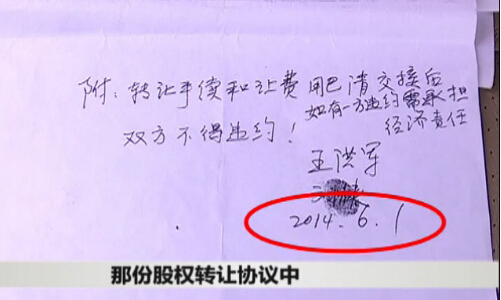 附：转让手续和让费用已清交接后
如有一方违约需承担
双方不得违约！
经济责任
王洪军
2014.6.1
那份股权转让协议中